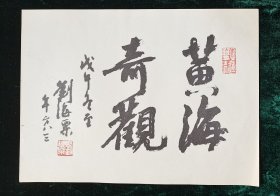 黄海
奇觀
戊午冬至
劉海粟
年八十三